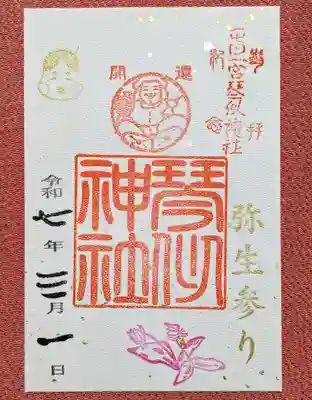 屯田一宮琴似神社
弥生参り
開運
琴似神社
令和七年三月一日